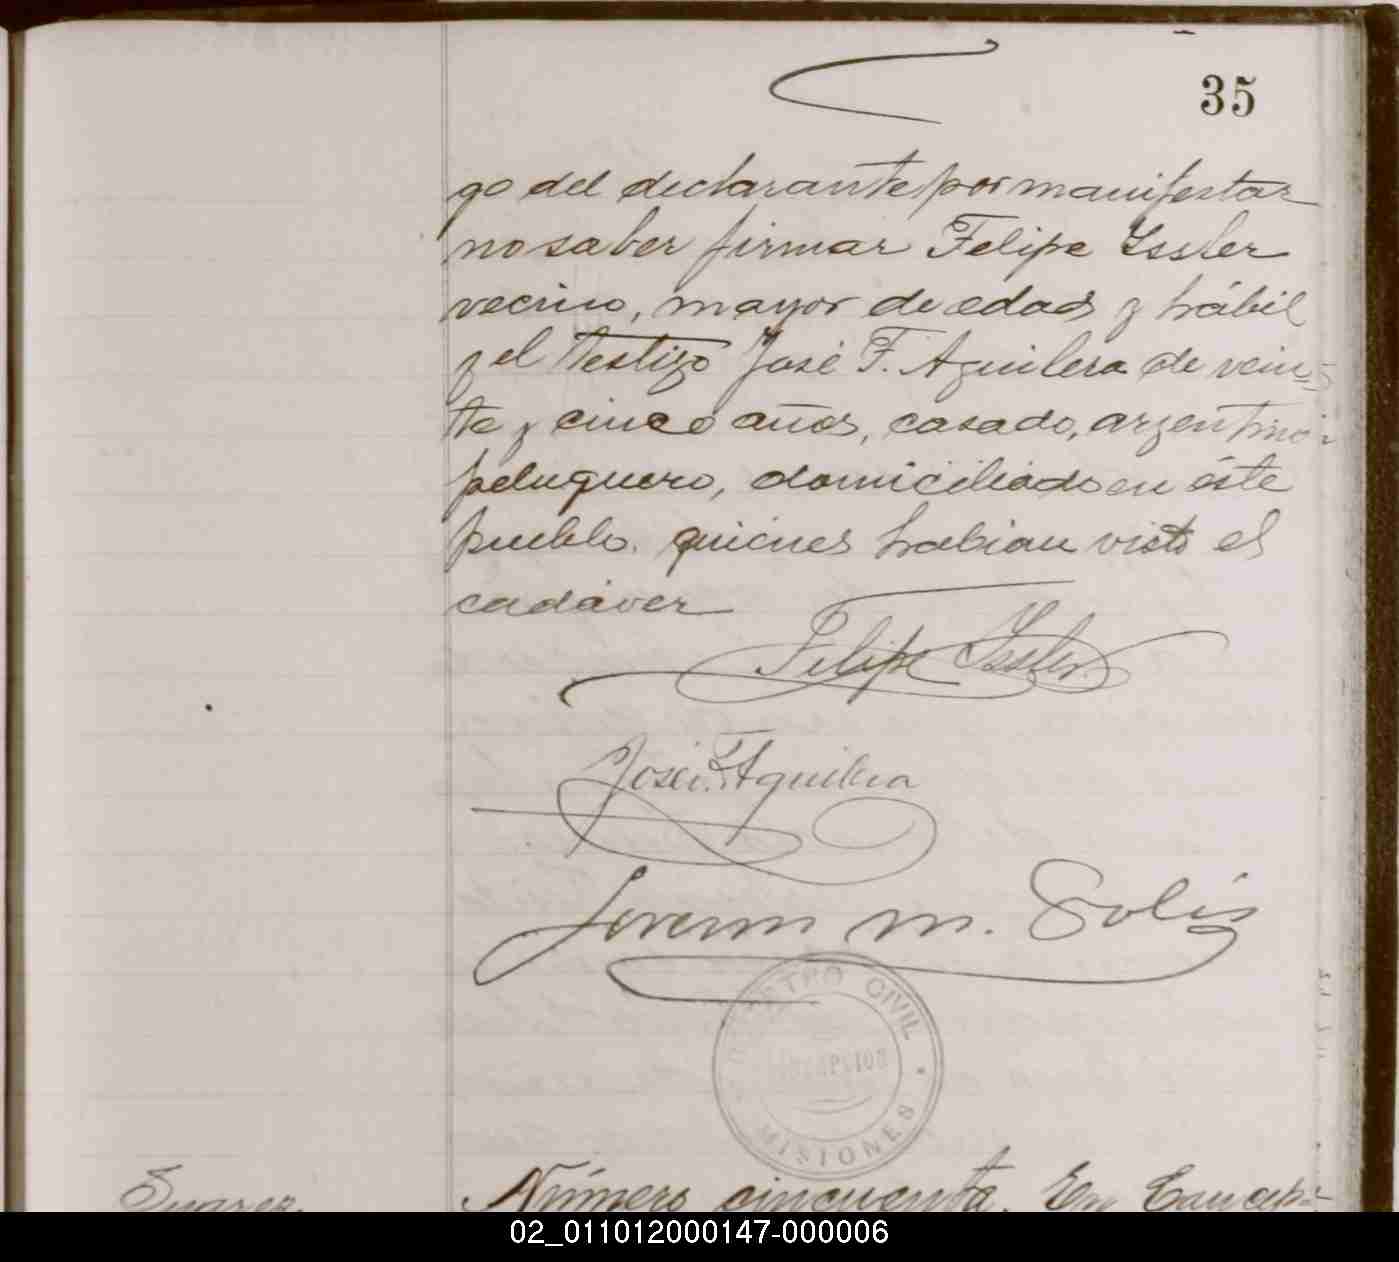 35
go del declarante por manifestar
no saber firmar Felipe Issler
vecino, mayor de edad y hábil
y el testigo José F. Aguilera de vein-
te y cinco años, casado, argentino
peluquero, domiciliado en éste
pueblo. quienes habian visto el
cadáver
Felipe Issler
José F. Aguilera
M. Solis
REGISTRO CIVIL
CONCEPCION
MISIONES
Suarez
Número cincuenta. En Concep-
02_011012000147-000006